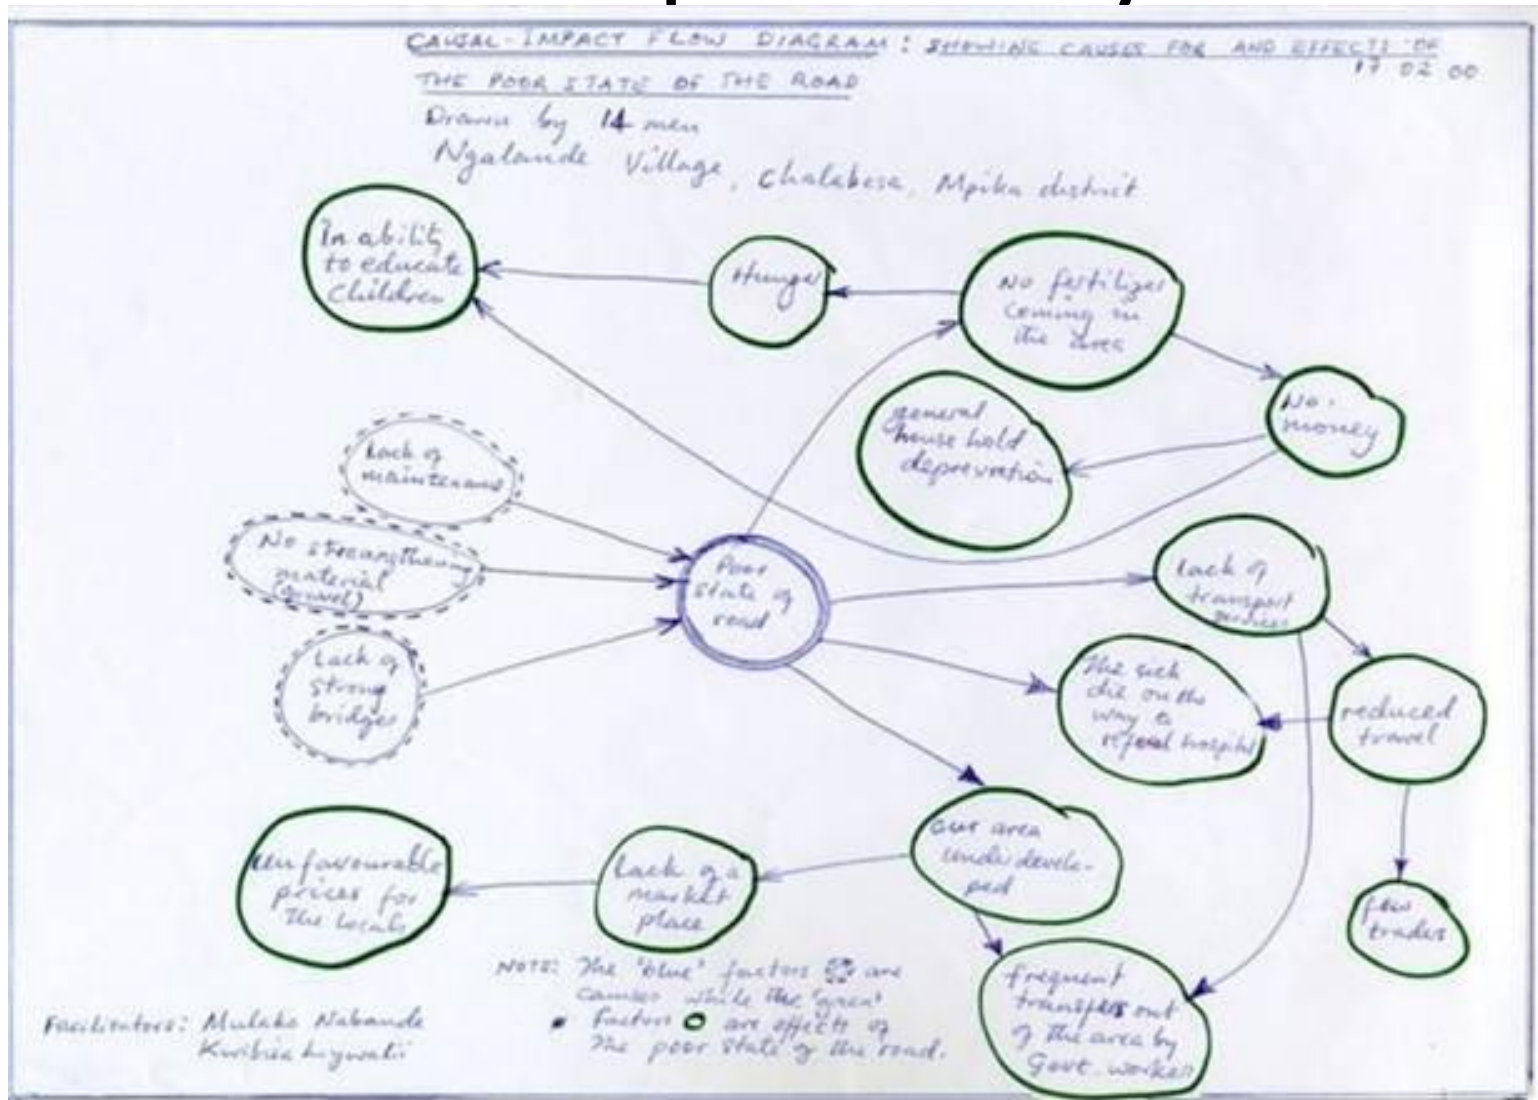 CAUSAL-IMPACT FLOW DIAGRAM: SHOWING CAUSES FOR AND EFFECTS OF
17 02 00
THE POOR STATE OF THE ROAD
Drawn by 14 men
Ngalande Village, Chalabesa, Mpika district
In ability
to educate
children
Hunger
No fertilizer
coming in
the area
No
money
general
house hold
deprevation
Lack of
maintenance
No streangthening
material
(gravel)
Lack of
strong
bridges
Poor
state of
road
Lack of
transport
services
The sick
die on the
way to
referal hospital
reduced
travel
few
trades
our area
under develo-
ped
Lack of a
market
place
unfavourable
prices for
the locals
frequent
transfers out
of the area by
Govt. workers
NOTE: The "blue" factors are
causes while the 'green'
Factors are effects of
the poor state of the road.
Facilitators: Mulako Nabanda